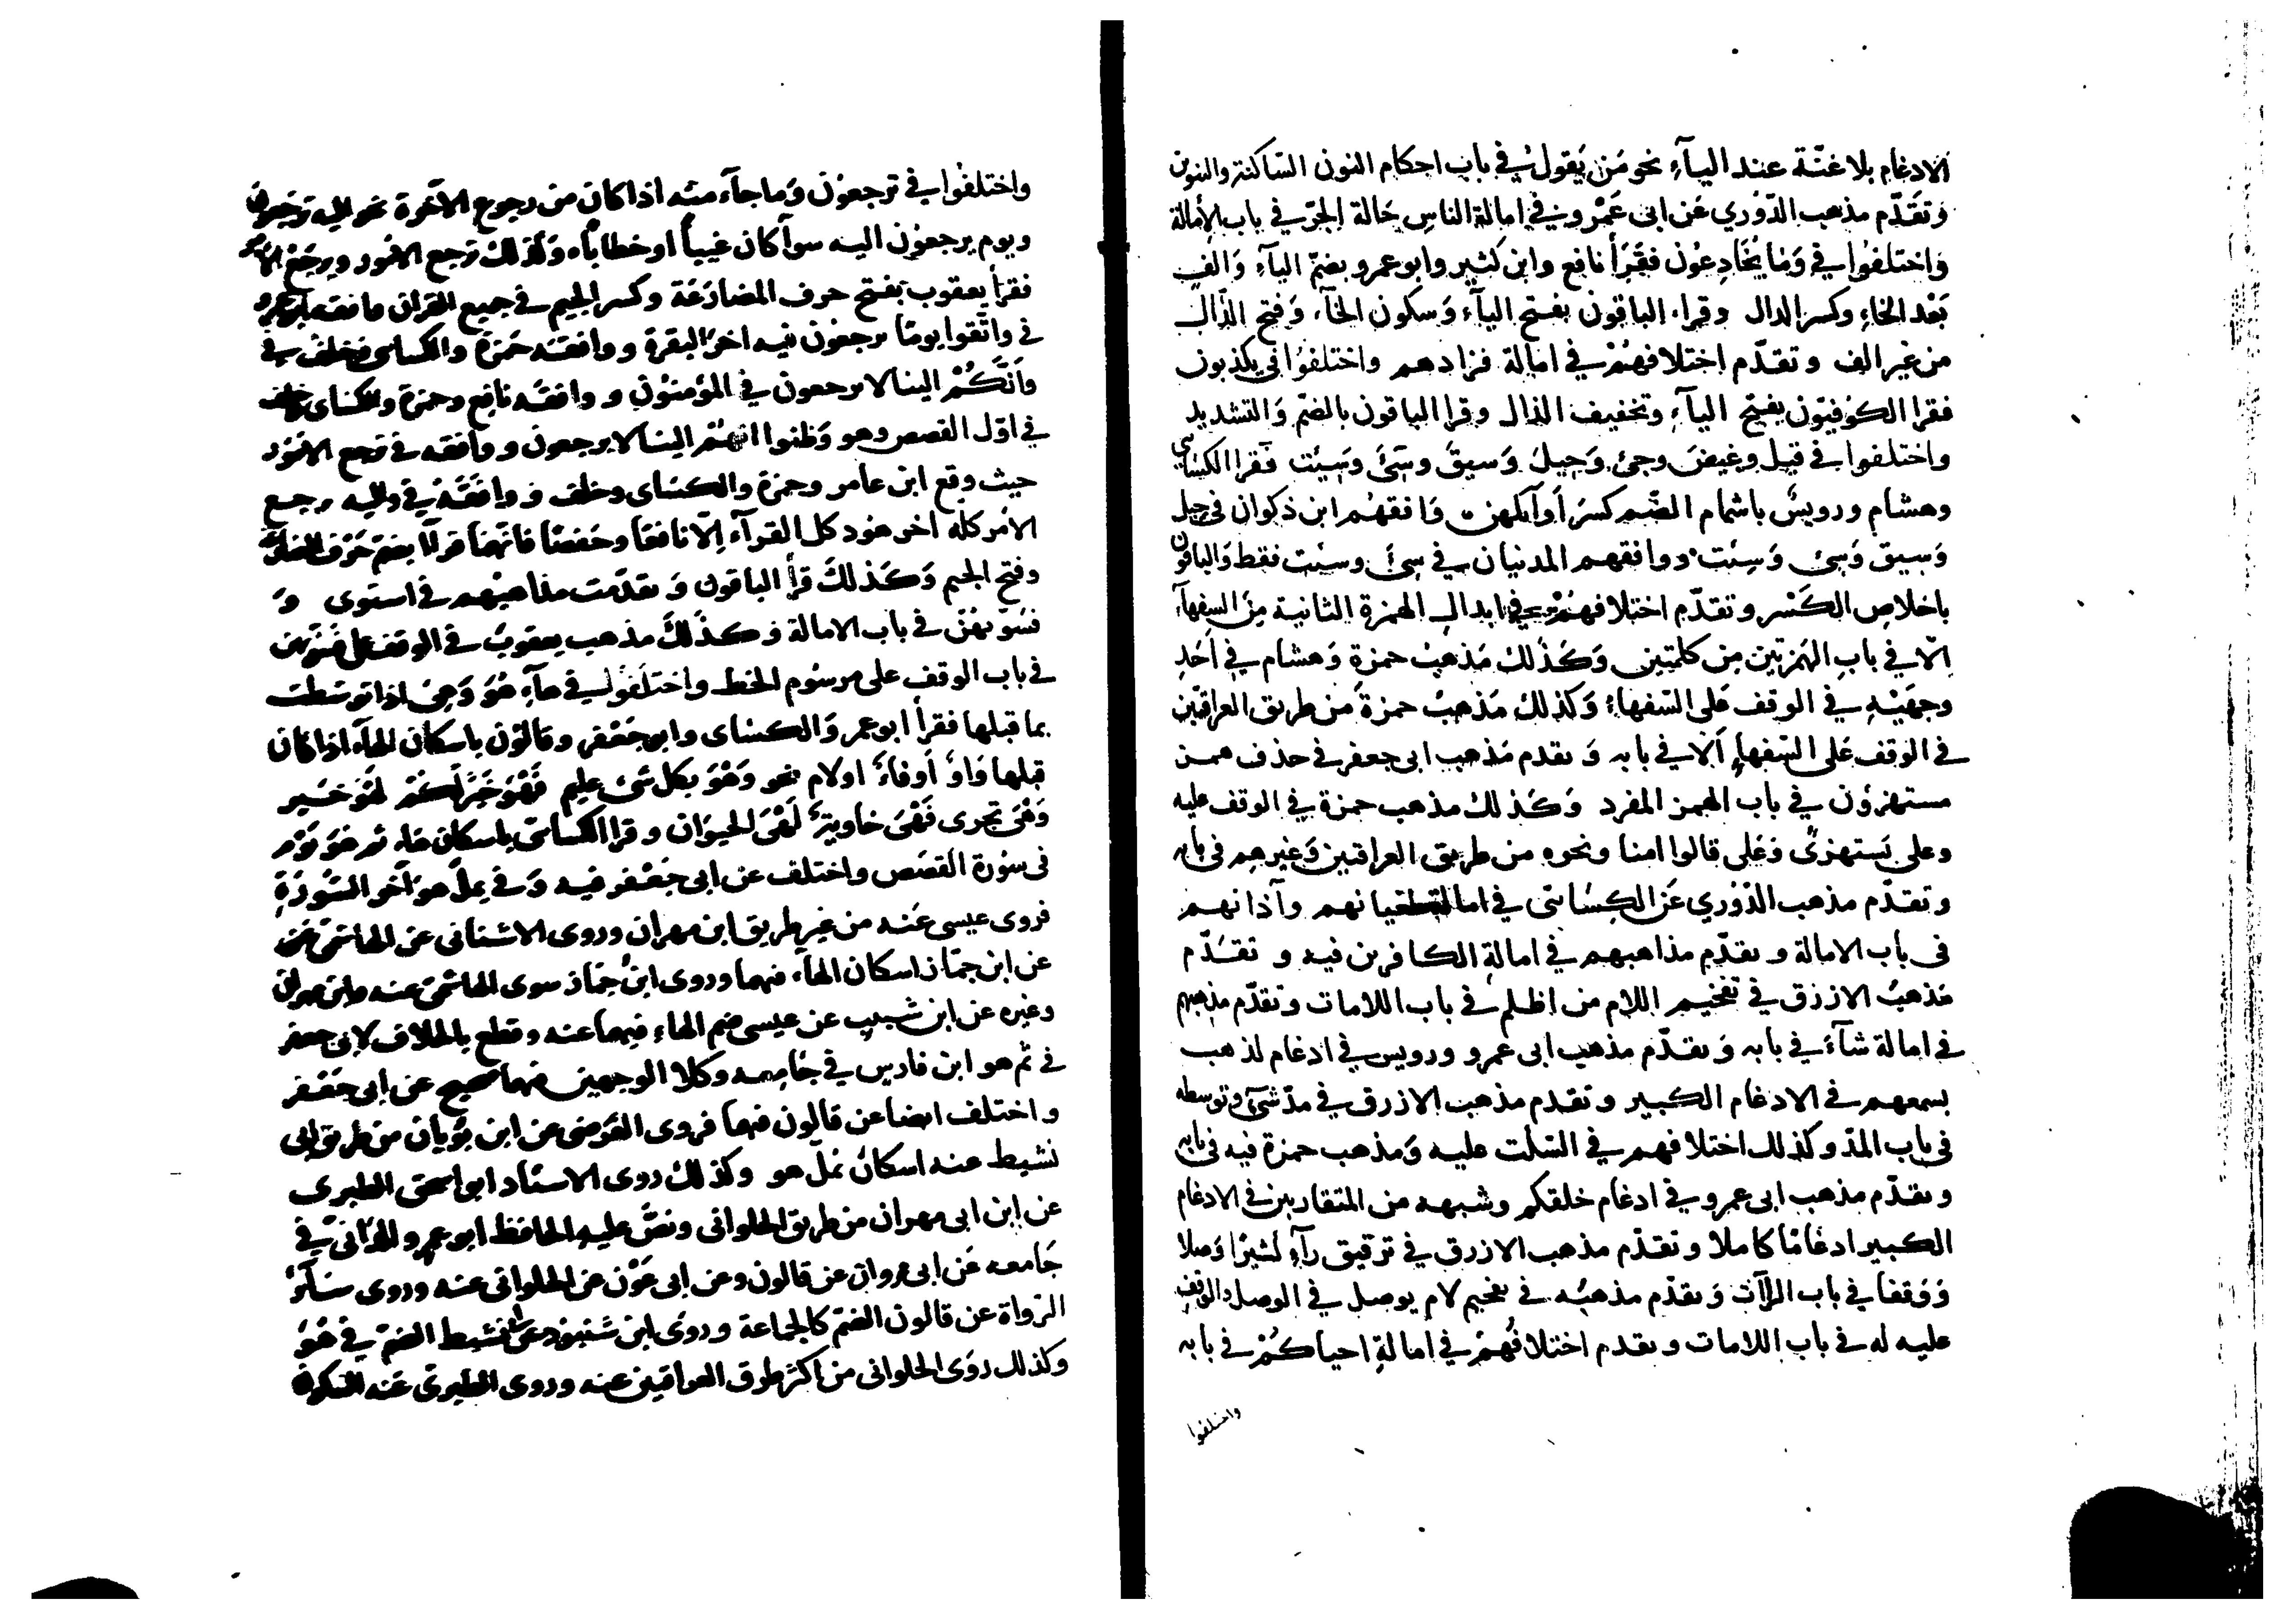 الادغام بلا غنّة عند اليآء نحو مَن يَقولُ في باب احكام النون السّاكنة والتنوين
وَتقدّم مذهب الدّوري عَن ابى عَمْرو في امالة الناسِ حَالة الجرّ في باب الإمالة
وَاختلفُوا في وَمَا يُخَادِعُون فقَرَأ نافع وابن كثير وابو عمرو بضمّ اليآءِ وَالفٍ
بَعْد الخاءِ وكسر الدال وقراء الباقون بفتح اليآء وَسكون الخآء وَفتح الدّال
من غير الف وتقدّم اختلافهُمْ في امالة فزادهم واختلفوُا في يكذبون
فقرا الكوُفيّون بفتح اليآءِ وتخفيف الذال وقرا الباقون بالضّم وَالتشديد
واختلفوا في قيل وغيضَ وجئ وَحِيلَ وَسيقَ وسَئَ وسَيئت فقرا الكسَاىٔ
وهشام ورويسٌ باشمام الضّم كسرَ اوآئلهن وَافقهُم ابن ذكوان في حيل
وَسيق وَسئ وَسِئت ووافقهم المدنيان في سئَ وسئت فقط وَالباقون
باخلاص الكَسْر وتقدّم اختلافهُمْ في ابدال الهمزة الثانية مِن السفهآء
اِلّا في بابِ الهَمزتين مِن كلمتين وَكَذلك مَذهبُ حمزة وَهشام في اَحَدِ
وجهَيْهِ في الوقف عَلى السّفهاء وَكذلك مَذهبُ حمزةَ مَن طريق العراقيّين
في الوقف عَلى السّفهاءُ اَلا في بابه وَتقدم مَذهب ابى جعفر في حذف همز
مستهزؤن في باب الهمز المفرد وَكَذلك مذهب حمزة في الوقف عليه
وعلى يَستهزئُ وَعَلى قالوا امنا ونحوه من طريق العراقيين وَغيرهم في بابه
وتقدّم مذهب الدّوري عَن الكِسَائى في امالة طغيانهم وآذانهم
في باب الامالة وتقدّم مذاهبهم في امالةِ الكافرين فيه وتقَدّم
مَذهبُ الازرق في تفخيم اللام من اظلم في باب اللامات وتقدّم مذهبهم
في امالة شآءَ في بابه وَتقدّم مذهب ابى عمرو ورويس في ادغام لذهب
بسمعهم في الادغام الكبير وتقدم مذهب الازرق في مدّ شئ وتوسطه
في باب المدّ وكذلك اختلافهم في السّكت عليه وَمذهب حمزة فيه في بابه
وتقدّم مذهب ابى عمرو في ادغام خلقكم وشبهه من المتقاربين في الادغام
الكبير ادغامًا كاملا وتقدّم مذهب الازرق في ترقيق رآءِ كثيرًا وَصلا
وَوَقفا في باب الرآآت وَتقدّم مذهبُه في تفخيم لام يوصل في الوصل والوقف
عليه له في باب اللامات وتقدم اختلافُهمْ في امالةِ احياكُمْ في بابه
واختلفوا
واختلفوُا في ترجعوُن وَماجآء منه اذا كان من رجوع الآخرة نحو اليه ترجعون
ويوم يرجعوُن اليه سوآ كان غيباً او خطاباً وَكَذلك ترجع الامور ويرجع الامر
فقرأ يعقوب بفتح حرف المضارَعَة وكسر الجيم في جميع القران وافقه ابو عمرو
في واتّقوا يومًا ترجعون فيه اخر البقرة ووافقه حَمزة والكسائ وخلف في
وَانّكُمْ الينا لا ترجعون في المؤمنوُن ووافقَه نافع وحمزة والكسائ وخلف
في اوّل القصص وهو وَظنوا انهُمْ الينا لا يرجعون ووافقه في ترجع الامُوُر
حيث وقع ابن عامر وحمزة والكسَاى وخلف ووافقَهُ في واليه يرجع
الامر كله اخر هود كل القرآء اِلّا نافعًا وحَفصًا فانّهمَا قرآ بضمّ حَرْف المضارعة
وفتح الجيم وَكَذلكَ قرأ الباقون وَتقدّمت مذاهبُهم في استوى وَ
فسَوّيهُنّ في باب الامالة وَكَذلكَ مذهب يعقوبُ في الوقف على فسَوّيهن
في باب الوقف على مرسُوم الخط واختلفوا في هآءِ هُوَ وَهِىَ اذا توسَطت
بما قبلها فقرأ ابو عمرو وَالكسَاى وابو جَعْفر وقالوُن باسكان الهآءِ اذا كان
قبلها وَاو اَوفاءَ اولام نحو وَهْوَ بكل شئ عليم فَهْوَ خَيْرٌ لكُمْ لهْوَ خَيرٌ
وَهْىَ تجرى فَهْىَ خاوية لَهْىَ الحيوَان وقرا الكسائىّ باسكان هاء ثم هو يَوْمَ
في سوُرة القصَص واختلف عن ابى جَعْفر فيه وَفي يملّ هو آخر السّورَةِ
فروى عيسى عَنه من غير طريق ابن مهران وروى الاشنانى عن الهاشمىّ عَن
عن ابن جمّاز اسكان الهآء فيهما وروى ابنُ جمّاز سوى الهاشمىّ عنه وابن مهران
وغيره عن ابن شبيب عن عيسى ضم الهاءِ فيهما عنه وقطع بالخلاف لابى جعفر
في ثم هو ابن فارس في جَامِعه وكلا الوجهين فيهما صحيح عن ابى جَعْفر
واختلف ايضا عن قالون فيها فروى الفرضى عن ابن بوُيان من طريق ابى
نشيط عنه اسكانُ يُملّ هو وكذلك روى الاستاد ابو اسحق الطبرى
عن ابن ابى مهران من طريق الحلوانى ونصَّ عليه الحافظ ابو عمرو الدّانىّ في
جَامعه عَن ابى مروان عن قالون وعن ابى عَوْن عن الحلوانى عنه وروى سَآئر
الرّواة عن قالون الضمّ كالجماعة وروى ابن شنبوذ عن ابى نشيط الضمّ في هُوَ
وكذلك روَى الحلوانى من اكثر طرق العراقيين عنه وروى الطبرىّ عَنه السّكون